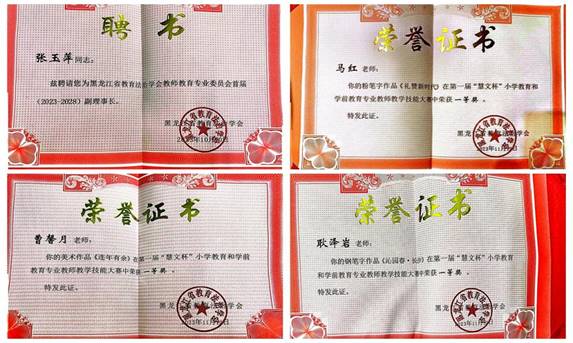 聘书
张玉萍同志:
兹聘请您为黑龙江省教育法治学会教师教育专业委员会首届
(2023-2028)副理事长。
黑龙江省教育法治学会
荣誉证书
马红 老师:
你的粉笔字作品《礼赞新时代》在第一届“慧文杯”小学教育和
学前教育专业教师教学技能大赛中荣获 一等奖 。
特发此证。
黑龙江省教育法治学会
2023年11月
荣誉证书
曹馨月 老师:
你的美术作品《连年有余》在第一届“慧文杯”小学教育和学前
教育专业教师教学技能大赛中荣获 一等奖 。
特发此证。
黑龙江省教育法治学会
2023年11月
荣誉证书
耿泽岩 老师:
你的钢笔字作品《沁园春·长沙》在第一届“慧文杯”小学教育
和学前教育专业教师教学技能大赛中荣获 一等奖 。
特发此证。
黑龙江省教育法治学会
2023年11月